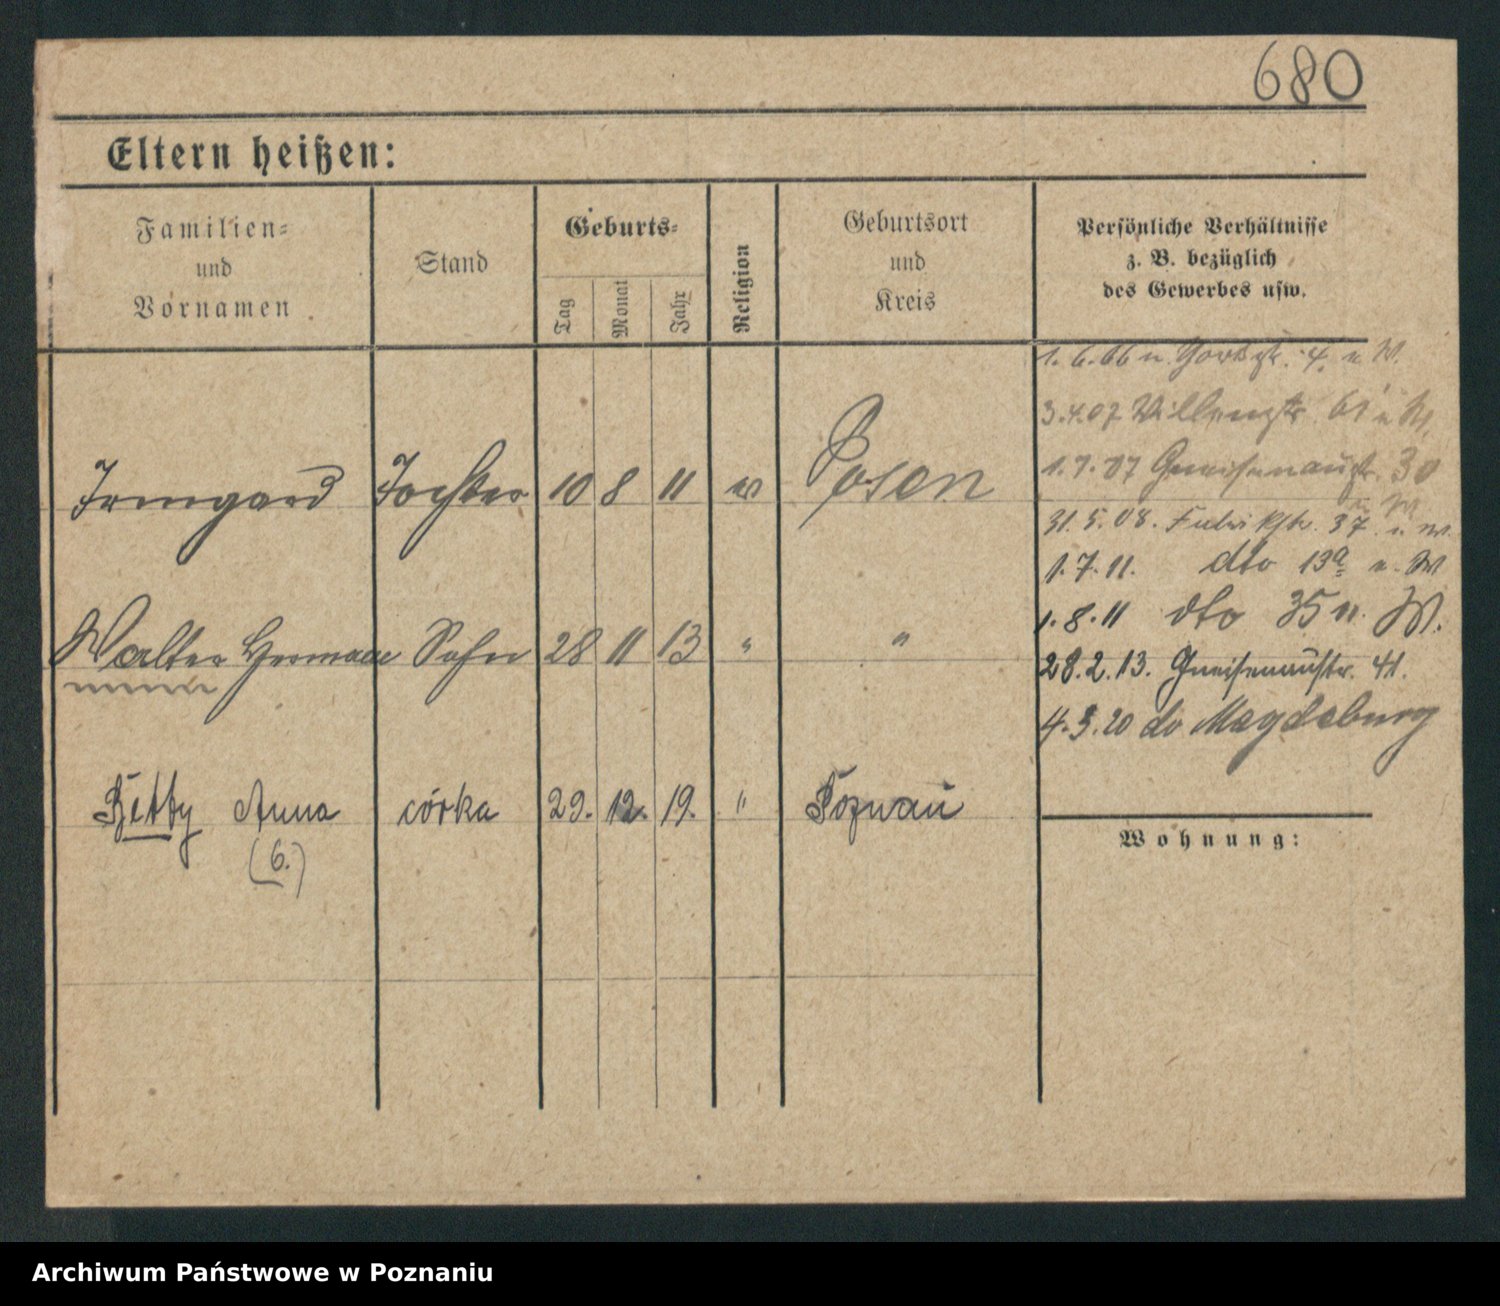 680
Eltern heißen:
Familien-
und
Vornamen
Stand
Geburts-
Tag
Monat
Jahr
Religion
Geburtsort
und
Kreis
Persönliche Verhältnisse
z. B. bezüglich
des Gewerbes usw.
1. 6. 06 n. 4. n W.
3.4.07 61 n W.
1.7.07 Gneisenaustr. 30
n W
31.5.08. 37 n. W.
1.7.11. dto 13a n. W
1.8.11 dto 35 n. W.
28.2.13. Gneisenaustr. 41.
4.3.20 do Magdeburg
Irmgard Tochter 10 8 11 ev Posen
Walter Hermann Sohn 28 11 13 " "
Hetty Anna córka 29. 12. 19. " Poznań
(6.)
Wohnung:
Archiwum Państwowe w Poznaniu